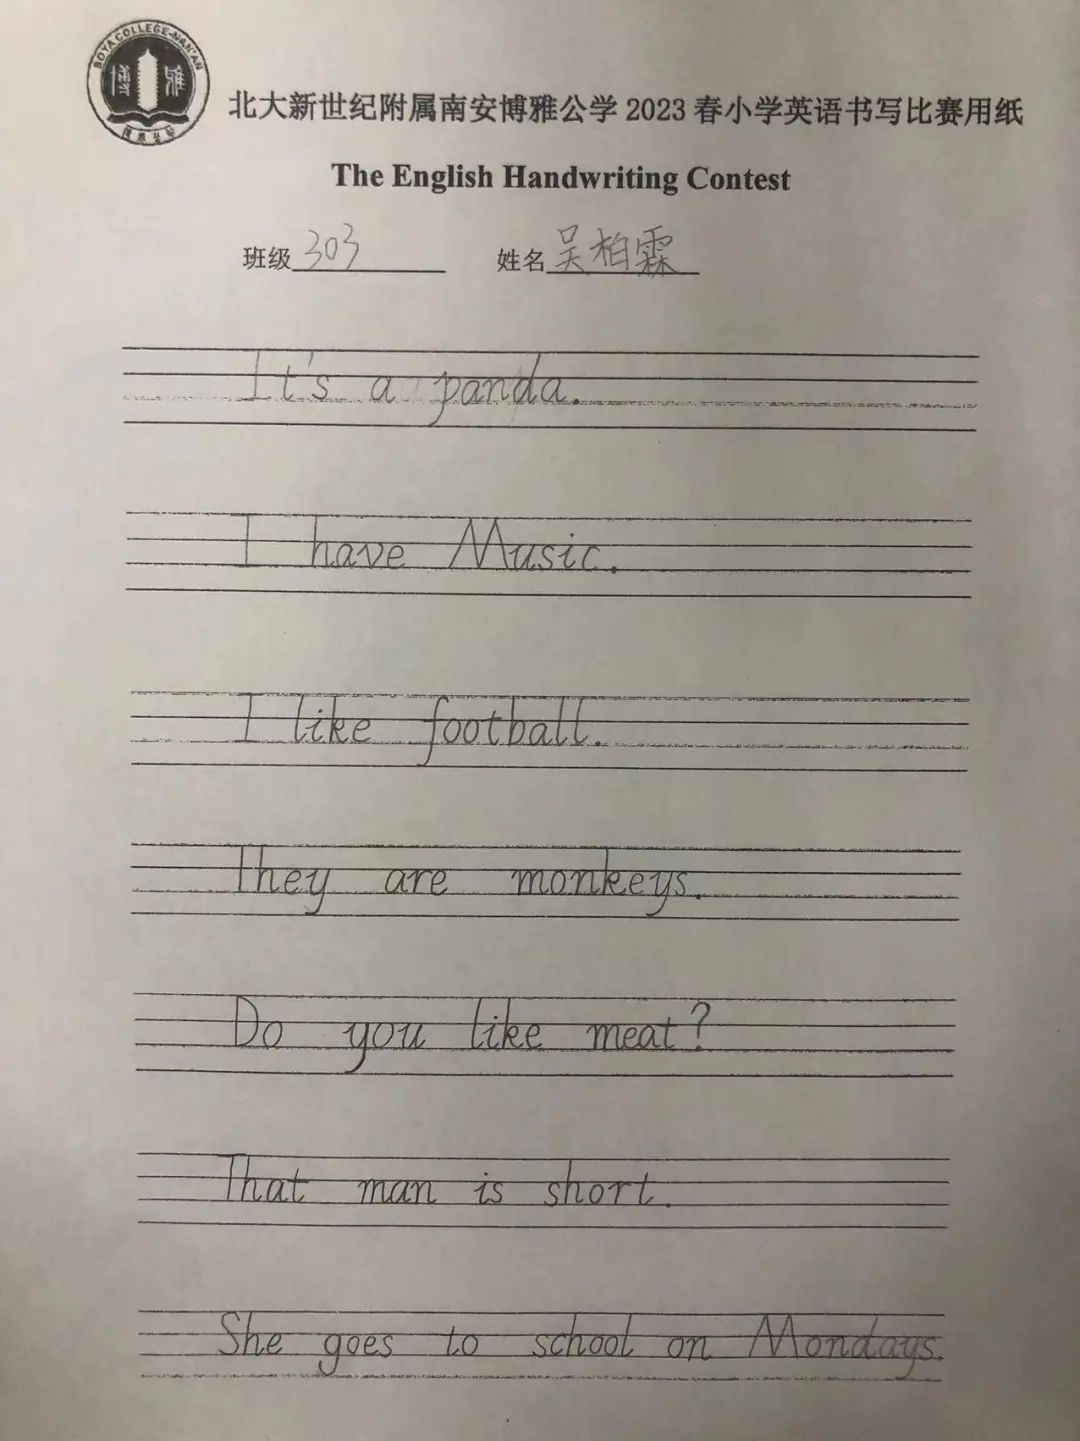 BOYA COLLEGE-NAN'AN
博雅
北大新世纪附属南安博雅公学 2023 春小学英语书写比赛用纸
The English Handwriting Contest
班级 303 姓名 吴柏霖
It's a panda.
I have Music.
I like football.
They are monkeys.
Do you like meat?
That man is short.
She goes to school on Mondays.